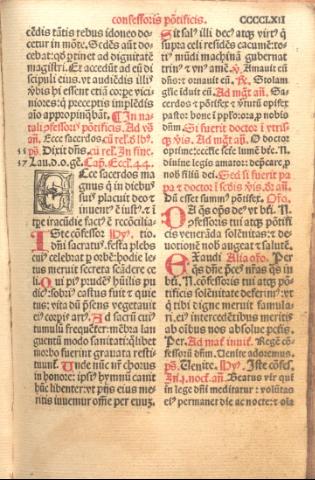 confessoris põtificis. CCCCLXII
cẽdis tãtis rebus idoneo do-
cetur in mõte. Sedẽs autẽ do-
cebat: qđ ptinet ad dignitatẽ
magistri. Et accedũt ad eũ di
scipuli eius. vt audiẽdis illiꝰ
vbis hi essent etiã corpe vici-
niores: q̃ preceptis implẽdis
aĩo appropinq̃bãt. ¶ In na-
tali ɔfessoris põtificis. Ad vꝶ.
Dixit dñs.
Lau. d.o.gẽ. Cap. Eccl. 44.
Ecce sacerdos ma
gnus q̃ in diebus
suis placuit deo et
inuentꝰ ẽ iustꝰ: et ĩ
tpe iracũdie factꝰ ẽ recõcilia-
Iste cõfessor
dñi sacratus. festa plebs
cuiꝰ celebrat p orbẽ: hodie le-
tus meruit secreta scãdere ce
li. Qui piꝰ prudẽs hũilis pu-
dicꝰ: sobriꝰ castus fuit et quie
tus: vita dũ p̃sens vegetauit
eiꝰ corpis artꝰ. Ad sacrũ cuiꝰ
tumulũ frequẽter: mẽbra lan
guentũ modo sanitati: q̃libet
morbo fuerint grauata resti-
tuunt̃. Unde nũc nr̃ chorus
in honorẽ: ipsiꝰ hymnũ canit
hũc libenter: vt piis eius me-
ritis iuuemur om̃e per euũ.
Sit salꝰ illi decꝰ atq̃ virtꝰ q̃
supra celi residẽs cacumẽ: to-
tiꝰ mũdi machinã gubernat
trinꝰ et vnꝰ amẽ. Amauit eũ
dñs: et ornauit eũ. Stolam
glorie iduit eũ. Ad mag̃t añ.
Sacerdos et põtifex et virtutũ opifex
pastor: bone ĩ pplo: ora, p nobis
dñm. Si fuerit doctor ĩ vtrisq̃
Ad mag̃t. añ. O doctor
optime: eccẽ. scẽ lumẽ bẽ. N.
diuine legis amator: dep̃care, p
nob filiũ dei.
Dũ esset summꝰ põtifex. Oro.
cõfessoris tui atq̃ põtificis
venerãda solẽnitas: et de-
uotionẽ nob augeat et salutẽ.
Exaudi Alia oro. Per
q̃s dñe p̃ces nr̃as q̃s in
bti. N. cõfessoris tui atq̃ põti-
ficis solẽnitate deferimꝰ: vt
q̃ tibi digne meruit famula-
ri. eiꝰ intercedẽtibus meritis
ab oĩbus nos absolue pctis.
Per. Ad mat inuit. Regẽ cõ-
fessorũ dñm. Venite adoremus.
ps. Venite. Hy. Iste cõfes.
In .1. noct. añ. Beatus vir qui
in lege dñi meditatur: volũtas
eiꝰ permanet die ac nocte: et oĩa